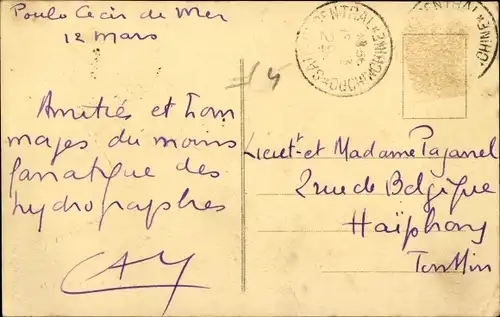 Poulo Cecir de Mer
12 Mars
Amitiés et hom
mages du moins
fanatique des
hydrographes
Lieut^t et Madame Paganel
2 rue de Belgique
Haïphong
Tonkin